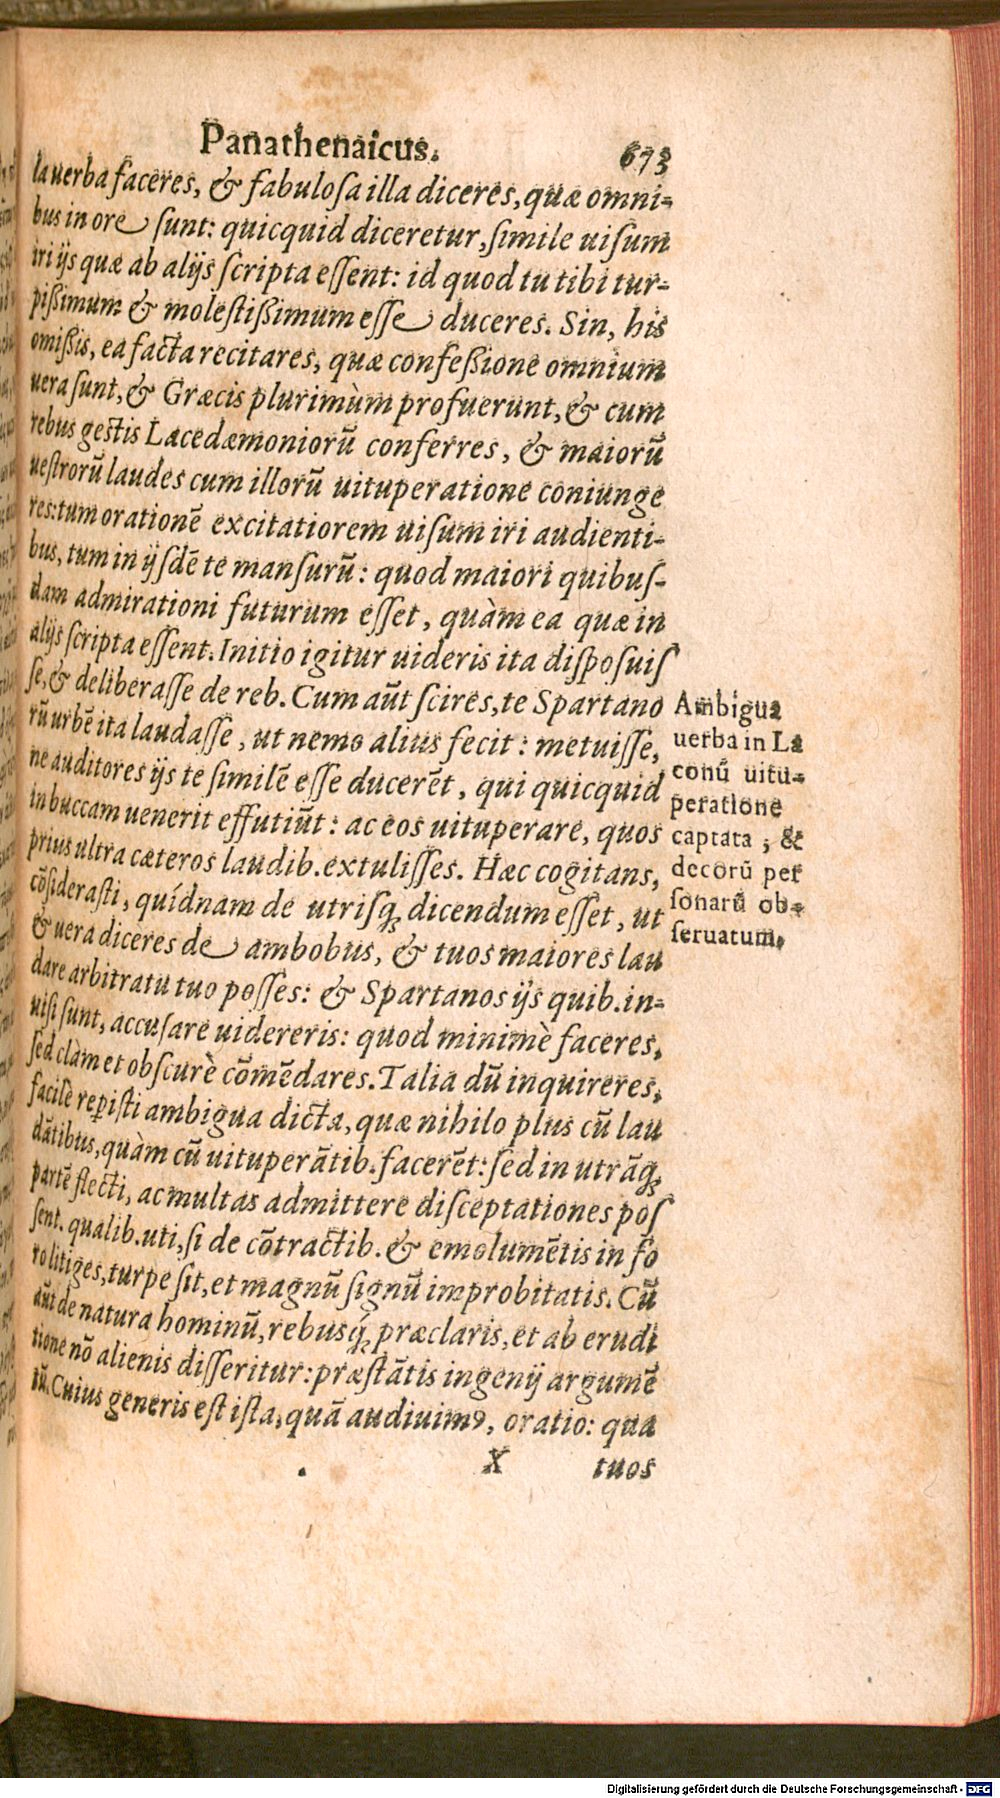 Panathenaicus. 673
la uerba faceres, & fabulosa illa diceres, quæ omni-
bus in ore sunt: quicquid diceretur, simile uisum
iri ijs quæ ab alijs scripta essent: id quod tu tibi tur-
pißimum & molestißimum esse duceres. Sin, his
omißis, ea facta recitares, quæ confeßione omnium
uera sunt, & Græcis plurimùm profuerunt, & cum
rebus gestis Lacedæmoniorũ conferres, & maiorũ
uestrorũ laudes cum illorũ uituperatione coniunge
res: tum orationẽ excitatiorem uisum iri audienti-
bus, tum in ijsdẽ te mansurũ: quod maiori quibus-
dam admirationi futurum esset, quàm ea quæ in
alijs scripta essent. Initio igitur uideris ita disposuis
se, & deliberasse de reb. Cum aũt scires, te Spartano
rũ urbẽ ita laudasse, ut nemo alius fecit: metuisse,
ne auditores ijs te similẽ esse ducerẽt, qui quicquid
in buccam uenerit effutiũt: ac eos uituperare, quos
prius ultra cæteros laudib. extulisses. Hæc cogitans,
cõsiderasti, quídnam de utrisq; dicendum esset, ut
& uera diceres de ambobus, & tuos maiores lau
dare arbitratu tuo posses: & Spartanos ijs quib. in-
uisi sunt, accusare uidereris: quod minimè faceres,
sed clàm et obscurè cõmẽdares. Talia dũ inquireres,
facilè reperisti ambigua dicta, quæ nihilo plus cũ lau
dãtibus, quàm cũ uituperãtib. facerẽt: sed in utrãq;
partẽ flecti, ac multas admittere disceptationes pos
sent. qualib. uti, si de cõtractib. & emolumẽtis in fo
ro litiges, turpe sit, et magnũ signũ improbitatis. Cũ
aũt de natura hominũ, rebusq́; præclaris, et ab erudi
tione nõ alienis disseritur: præstãtis ingenij argumẽ
tũ. Cuius generis est ista, quã audiuimꝰ, oratio: qua
X tuos
Ambigua
uerba in La
conũ uitu-
peratione
captata; &
decorũ per
sonarũ ob-
seruatum.
Digitalisierung gefördert durch die Deutsche Forschungsgemeinschaft - DFG